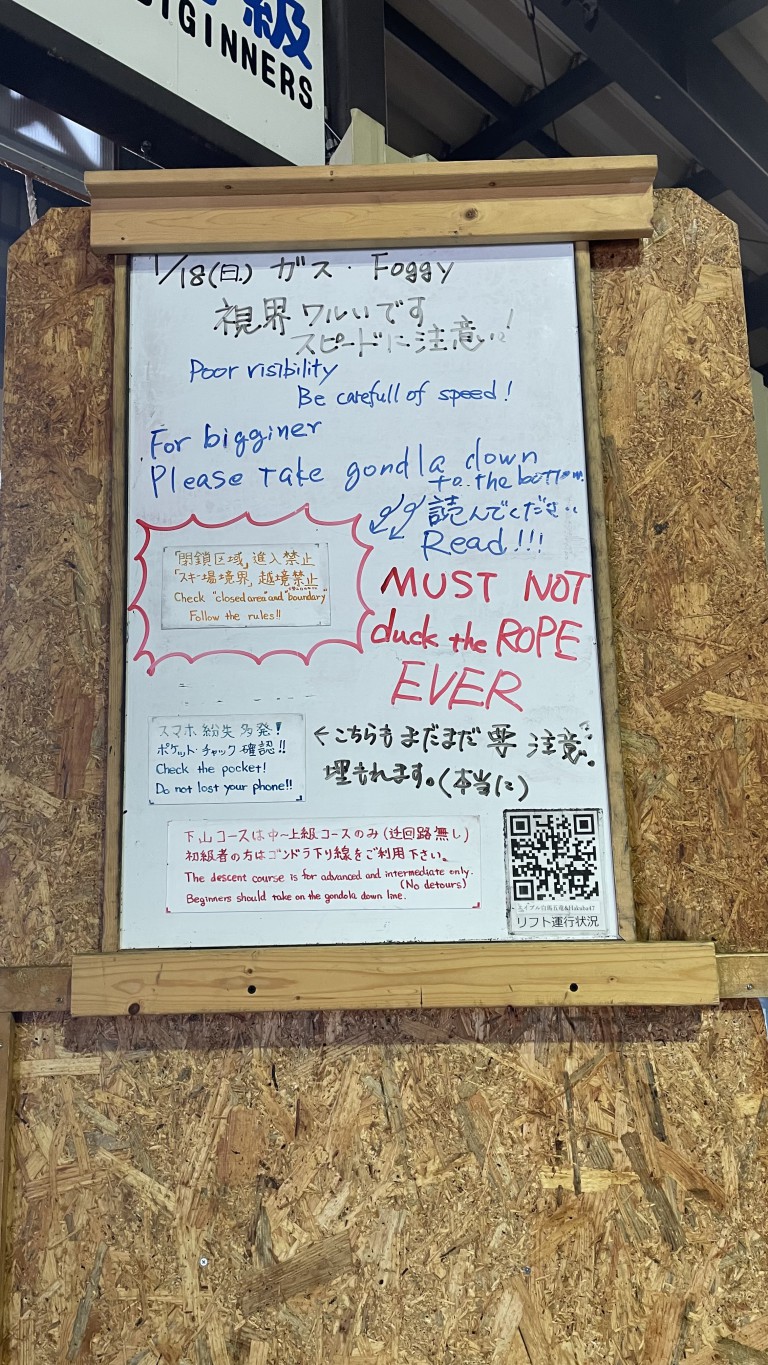 級
BIGINNERS
1/18(日.) ガス・Foggy
視界ワルいです
スピードに注意!!
Poor visibility
Be carefull of speed!
For bigginer
Please take gondla down
to the bottom
読んでください
Read!!!
「閉鎖区域」進入禁止
「スキー場境界」越境禁止
Check "closed area" and "boundary"
Follow the rules!!
MUST NOT
duck the ROPE
EVER
スマホ紛失多発!
ポケット・チャック確認!!
Check the pocket!
Do not lost your phone!!
←こちらもまだまだ要注意.
埋もれます。(本当に)
下山コースは中~上級コースのみ(迂回路無し)
初級者の方はゴンドラ下り線をご利用下さい。
The descent course is for advanced and intermediate only.
(No detours)
Beginners should take on the gondola down line.
エイブル白馬五竜&Hakuba47
リフト運行状況